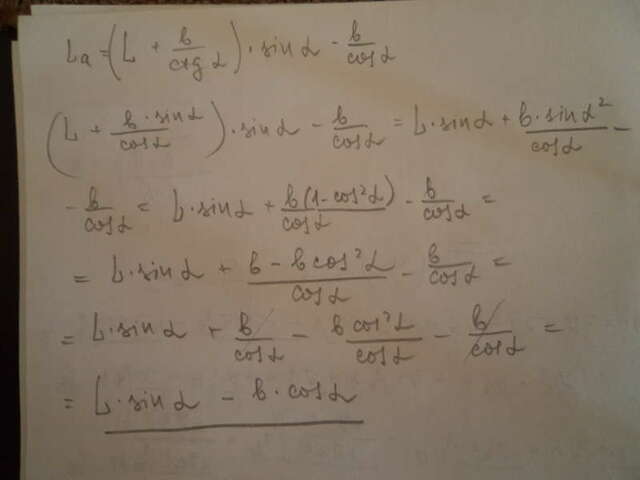 La = (L + b/ctg α) · sin α - b/cos α
(L + b · sin α/cos α) · sin α - b/cos α = L · sin α + b · sin α²/cos α -
- b/cos α = L · sin α + b(1 - cos² α)/cos α - b/cos α =
= L · sin α + b - b cos² α/cos α - b/cos α =
= L · sin α + b/cos α - b cos² α/cos α - b/cos α =
= L · sin α - b · cos α